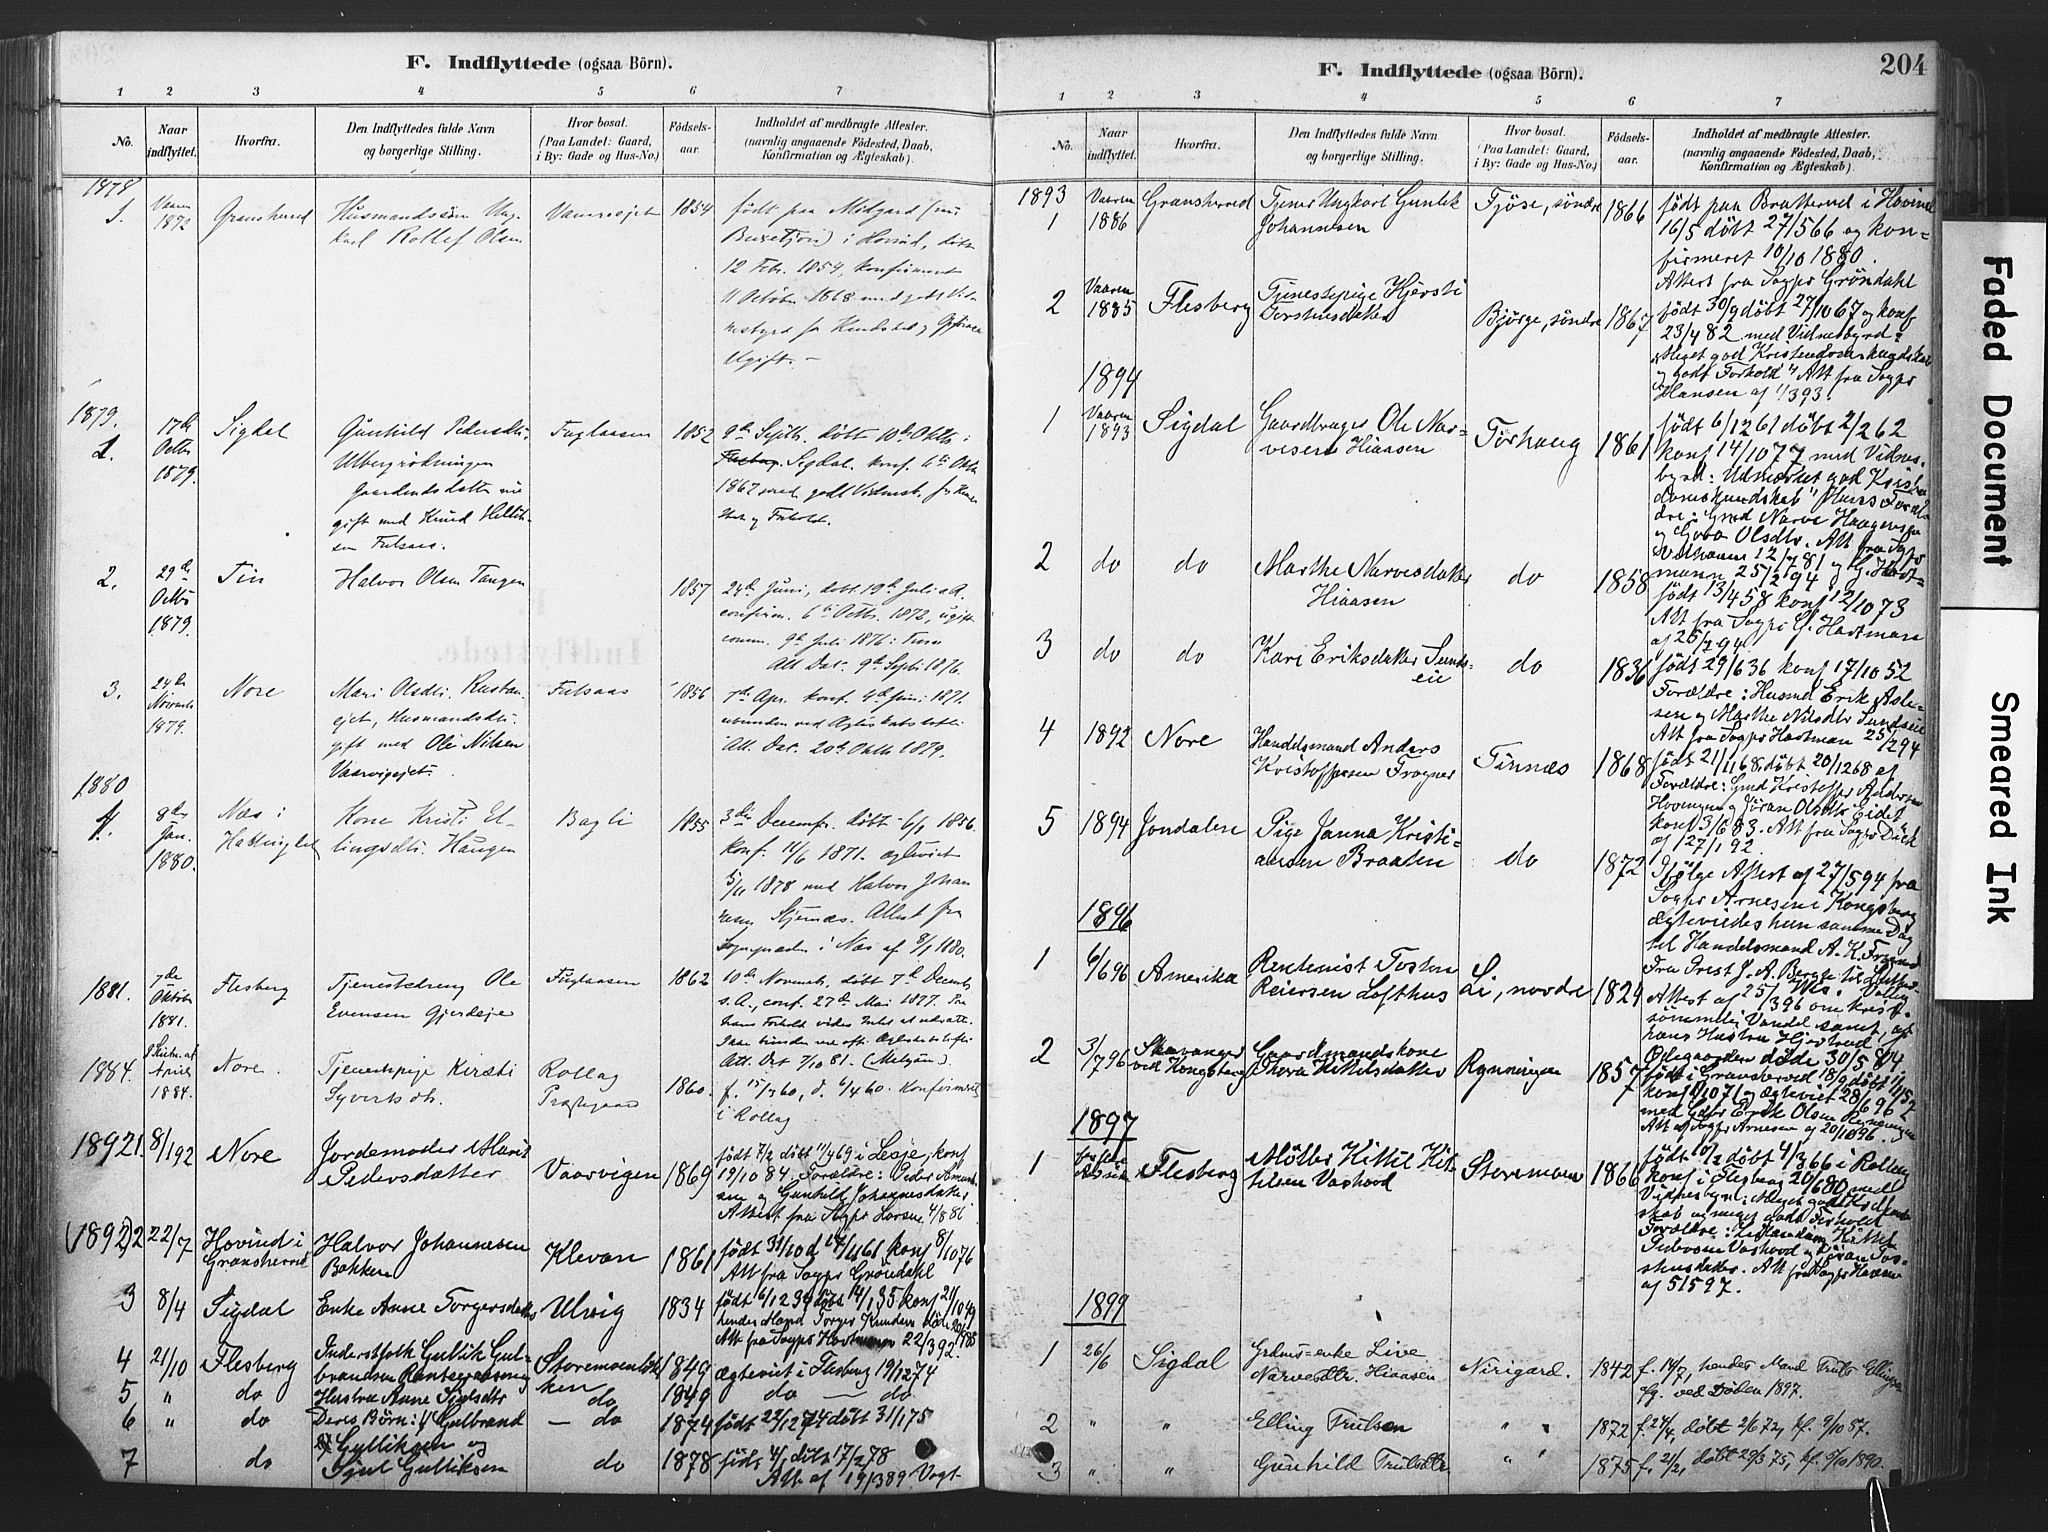 F. Indflyttede (ogsaa Börn).
1 2 3 4 5 6 7
No.
Naar indflyttet.
Hvorfra.
Den Indflyttedes fulde Navn
og borgerlige Stilling.
Hvor bosat.
(Paa Landet: Gaard,
i By: Gade og Hus-No.)
Fødsels-
aar.
Indholdet af medbragte Attester.
(navnlig angaaende Födested, Daab,
Konfirmation og Ægteskab).
1878
1. Vaaren 1872 Gransherred Husmandssön Ung-
karl Rollef Olsen 1854 født paa Midgard
i Hovind, døbt
12 Febr. 1854, konfirmeret
Octobr 1868 med godt
Ugift. -
1879.
1. 17de Octbr 1879. Sigdal Gunhild Pedersdtr. Fuglaasen 1852 9de Septb. döbt 10de Oktb:
Sigdal. konf. 6te Oktb
1867 med godt
gift med Knud
2. 29de Octbr 1879. Tin Halvor Olsen Tangen 1857 24de Juni, döbt 19de Juli s. A.
confirm. 6te Octbr. 1872, ugift
comm. 9de Juli 1876 i Tinn
Att. Dat. 9de Septb. 1876.
3. 24de Novemb 1879. Nore Mari Olsdtr. Rustan-
ejet, Husmandsdtr.
gift med Ole Nilsen
Vaarvigejet. 1856 7de Apr. konf. 4de Juni 1871.
Att. Dat. 20de Oktb 1879.
1880
1. 8de Jan. 1880. Næs i Hallingdal Kone Kristi El-
lingsdtr. Haugen Bagli 1855 3die Decemb. döbt 6/1 1856.
konf. 11/6 1871. ægteviet
5/11 1878 med Halvor Johan
Attest fra
i Næs af 8/1 1880.
1881. 7de Oktbr 1881. Flesberg Tjenestedreng Ole
Evensen Gjerdeje Fuglaasen 1862 10de Novemb, döbt 7de Decemb
s. A., conf. 27de Mai 1877.
Att. Dat 7/10 81.
1884. April 1884. Nore. Tjenestepige Kirsti
Syvertsdtr. Rollag
Præstegaard 1860. Konfirmeret
i Rollag
1892 1. 8/1 92 Nore Jordemoder Marit
Pedersdatter Vaarvigen 1869 født 7/2 döbt 11/4 69 i Lesje, konf
19/10 84. Forældre: Peder Amund-
sen og Gunhild Johannesdatter
Attest fra Sogpr Larsen 4/8 86
(1892) 2 22/7 Hovind i
Gransherred Halvor Johannesen
Bakken Klevan 1861 født 31/10 d 17/11 61 konf 8/10 76
Att fra Sogpr Gröndahl
3 8/4 Sigdal Enke Anne Torgersdatter Ulvig 1834 født 6/12 34 döbt 14/1 35 konf 21/10 49
Att fra Sogpr Hartmann 22/3 92.
4 21/10 Flesberg Inderstfolk Gullik Gul-
brandsen 1849 ægteviet i Flesberg 19/12 74
5 " do Hustru Anne do 1849 do — do
6 " do Deres Börn: Gulbrand — do 1874 født 27/12 74 döbt 31/1 75
Gulliksen og
7 do Sjul Gulliksen do 1878 föd: 4/1 döbt 17/2 78
Att. af 19/3 89 Vogt
F. Indflyttede (ogsaa Börn).
204
1 2 3 4 5 6 7
No.
Naar indflyttet.
Hvorfra.
Den Indflyttedes fulde Navn
og borgerlige Stilling.
Hvor bosat.
(Paa Landet: Gaard,
i By: Gade og Hus-No.)
Födsels-
aar.
Indholdet af medbragte Attester.
(navnlig angaaende Födested, Daab,
Konfirmation og Ægteskab).
1893
1 Vaaren 1886 Gransherred Tjener Ungkarl Gunlik
Johannesen Fjöse, söndre 1866 født paa Bratterud i Hovind
16/5 döbt 27/5 66 og kon-
firmeret 10/10 1880.
Attest fra Sogpr Gröndahl
2 Vaaren 1885 Flesberg Tjenestepige Kjersti
Torstensdatter Björge, söndre 1867 født 30/9 döbt 27/10 67 og konf
23/4 82 med Vidnesbyrd:
Meget god Kristendomskundskab
og godt Forhold" Att fra Sogpr
Hansen af 1/3 93.
1894
1 Vaaren 1893 Sigdal Gaardbruger Ole Nar-
vesen Hiaasen Torhaug 1861 født 6/12 61 döbt 2/2 62
konf 14/10 77 med Vidnes-
byrd: Udmærket god Krist-
domskundskab" Hans Foræl-
dre: Gmd Narve Haagensen
og Olsdtr. Att fra Sogpr
12/7 81 og G. Hart-
mann 25/2 94
2 do do Marthe Narvesdatter
Hiaasen do 1858 født 13/4 58 konf 12/10 73
Att fra Sogpr G. Hartmann
af 25/2 94
3 do do Kari Eriksdatter Sunds-
eie do 1836 født 29/6 36 konf 17/10 52
Forældre: Husmd Erik Asle-
sen og Marthe Nilsdtr Sundseie
Att fra Sogpr Hartman 25/2 94
4 1892 Nore Handelsmand Anders
Kristoffersen Frogner Tinnæs 1868 født 21/11 68, döbt 20/12 68 af
Forældre: Gmd Kristoffer Andersen
Hovengen og Jöran Olsdtr Eidet
konf 3/6 83. Att fra Sogpr Dück
af 27/1 92.
5 1894 Jondalen Pige Janna Kristi-
ansen Braaten do 1872 Ifölge Attest af 27/5 94 fra
Sogpr Arnesen i Kongsberg
ægteviedes hun samme Dag
til Handelsmand A. K. Frogner
1896
1 6/6 96 Amerika Rentenist Tosten
Reiersen Lofthus Li, nordre 1824 Fra Prest J. A. Bergh til
Attest af 25/3 96 om krist.
sömmelig Vandel samt, at
hans Hustru Hjertrud
Ödegaarden döde 30/5 84
2 3/7 96 Stavanger
ved Kongsberg Gaardmandskone
Thora Kittilsdatter Rynningen 1857 født i Gransherred 18/9 döbt
konf 1/10 71 og ægteviet 28/6 96
med Gdbr Erik Olsen Rynningen
Att af Sogpr Arnesen af 20/10 96.
1897
1 Flesberg Möller Kittil Kit-
tilsen Vashovd Storemoen 1866 født 10/2 döbt 4/3 66 i Rollag
konf i Flesberg 20/6 80 med
Vidnesbyrd: Meget god Kristendoms-
skab og meget godt Forhold
Forældre: Kittil
Pedersen Vashovd og Jöran Tos-
tensdatter. Att fra Sogpr Hansen
af 5/5 97.
1899
1 26/6 Sigdal Grdms-enke Live
Narvesdtr. Hiaasen Nirigard. 1842 f. 14/7, hendes Mand Truls Ellingsen
fg. ved Döden 1897.
2 " " Elling Trulsen " " 1872 f. 27/4, döbt 2/6 72, kf. 9/10 87.
3 " " Gunhild Trulsdtr. " " 1875 f. 2/2, döbt 29/3 75, kf. 5/10 1890.
Faded Document
Smeared Ink